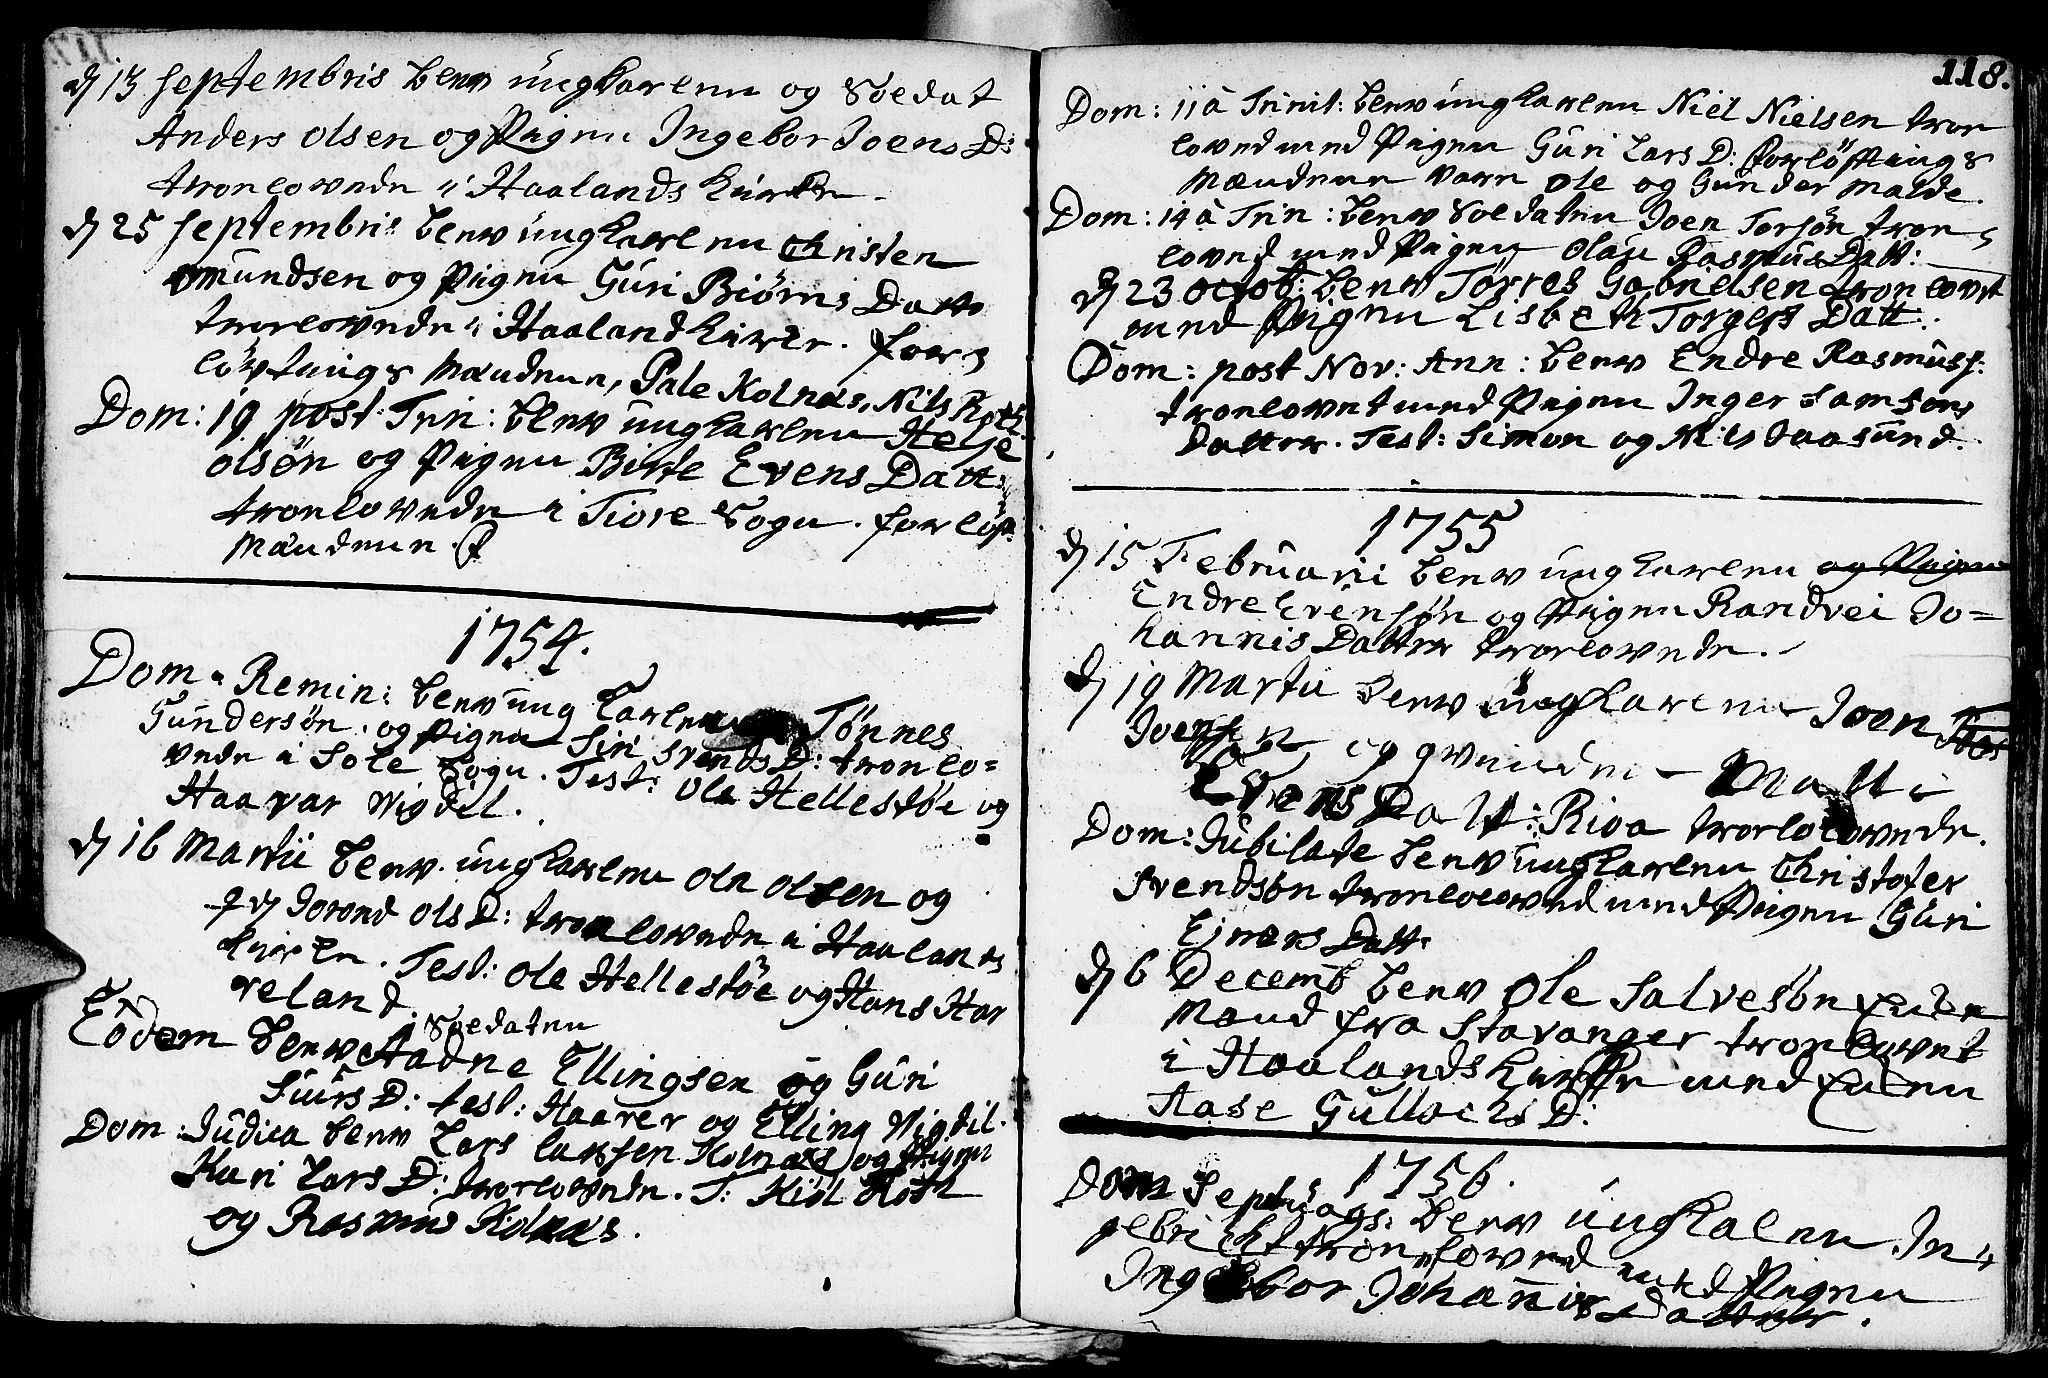 d 13 Septembris blew ungkarlen og Soldat
Anders Olsen og Pigen Ingebor Joens D:
troelovede i Haalands Kirke.
d 25 Septembris blew ungkarlen Christen
Omundsen og Pigen Guri Biørns Datt:
troelovede i Haaland Kirke. for=
løftnings Mændene, Pale Kolnes, Nils Roth.
Dom: 19 post Trin: blew ungkarlen Helje
Olsøn og Pigen Birte Evens Datt:
troelovede i Tiore Sogn. forløft:
Mændene.
1754.
Dom. Remin: blew ung karlen Tønnes
Gundersøn og Pigen Siri Svends D: troelo=
vede i Sole Sogn. Test: Ole Hellestøe og
Haavar Wigdel.
d 16 Martii blew ungkarlen Ole Olsen og
Jorond Ols D: troelovede i Haalands
Kirke. Test: Ole Hellestøe og Hans Har
veland.
Soldaten
Eodem blew Aadne Ellingsen og Guri
Siurs D: test: Haaver og Elling Wigdil.
Dom: Judica blew Lars Larssen Kolnes og Pigen
Kari Lars D: troelovede. T: Kiøl Roth
og Rasmus Kolnes.
118.
Dom: 11 à Trinit: blew ungkarlen Niel Nielsen troe
lovedt med Pigen Guri Lars D: forløftnings
Mændene vare Ole og Gunder Malde.
Dom: 14 à Trin: blew Soldaten Joen Torsøn troe=
lovedt med Pigen Olau Rasmus Datt:
d 23 octob: blew Torres Gabrielsen troelovet
med Pigen Lisbeth Torgers Datt:
Dom: post Nov: Ann: blew Endre Rasmuss:
troelovet med Pigen Inger Samsons
Datter. Test: Simon og Nils Taasund.
1755
d 15 Februarii blew ungkarlen og Pigen
Endre Evensøn og Pigen Randvei Jo=
hannis Datter troelovede.
d 19 Martii blew ungkarlen Joen
Joensen og qvinden Malli
Evens Datt: Risa troelovede.
Dom: Jubilate blew ungkarlen Christofer
Svendsøn troelovedt med Pigen Guri
Ejners Datt:
d 6 Decemb blew Ole Salvesøn Enke
Mand fra Stavanger troelovet
i Haalands Kirke med Enken
Aase Gullachs D:
1756.
Dom Septuags: blew ungkalen In=
gebricht troelovedt med Pigen
Ingebor Johannis Datter.